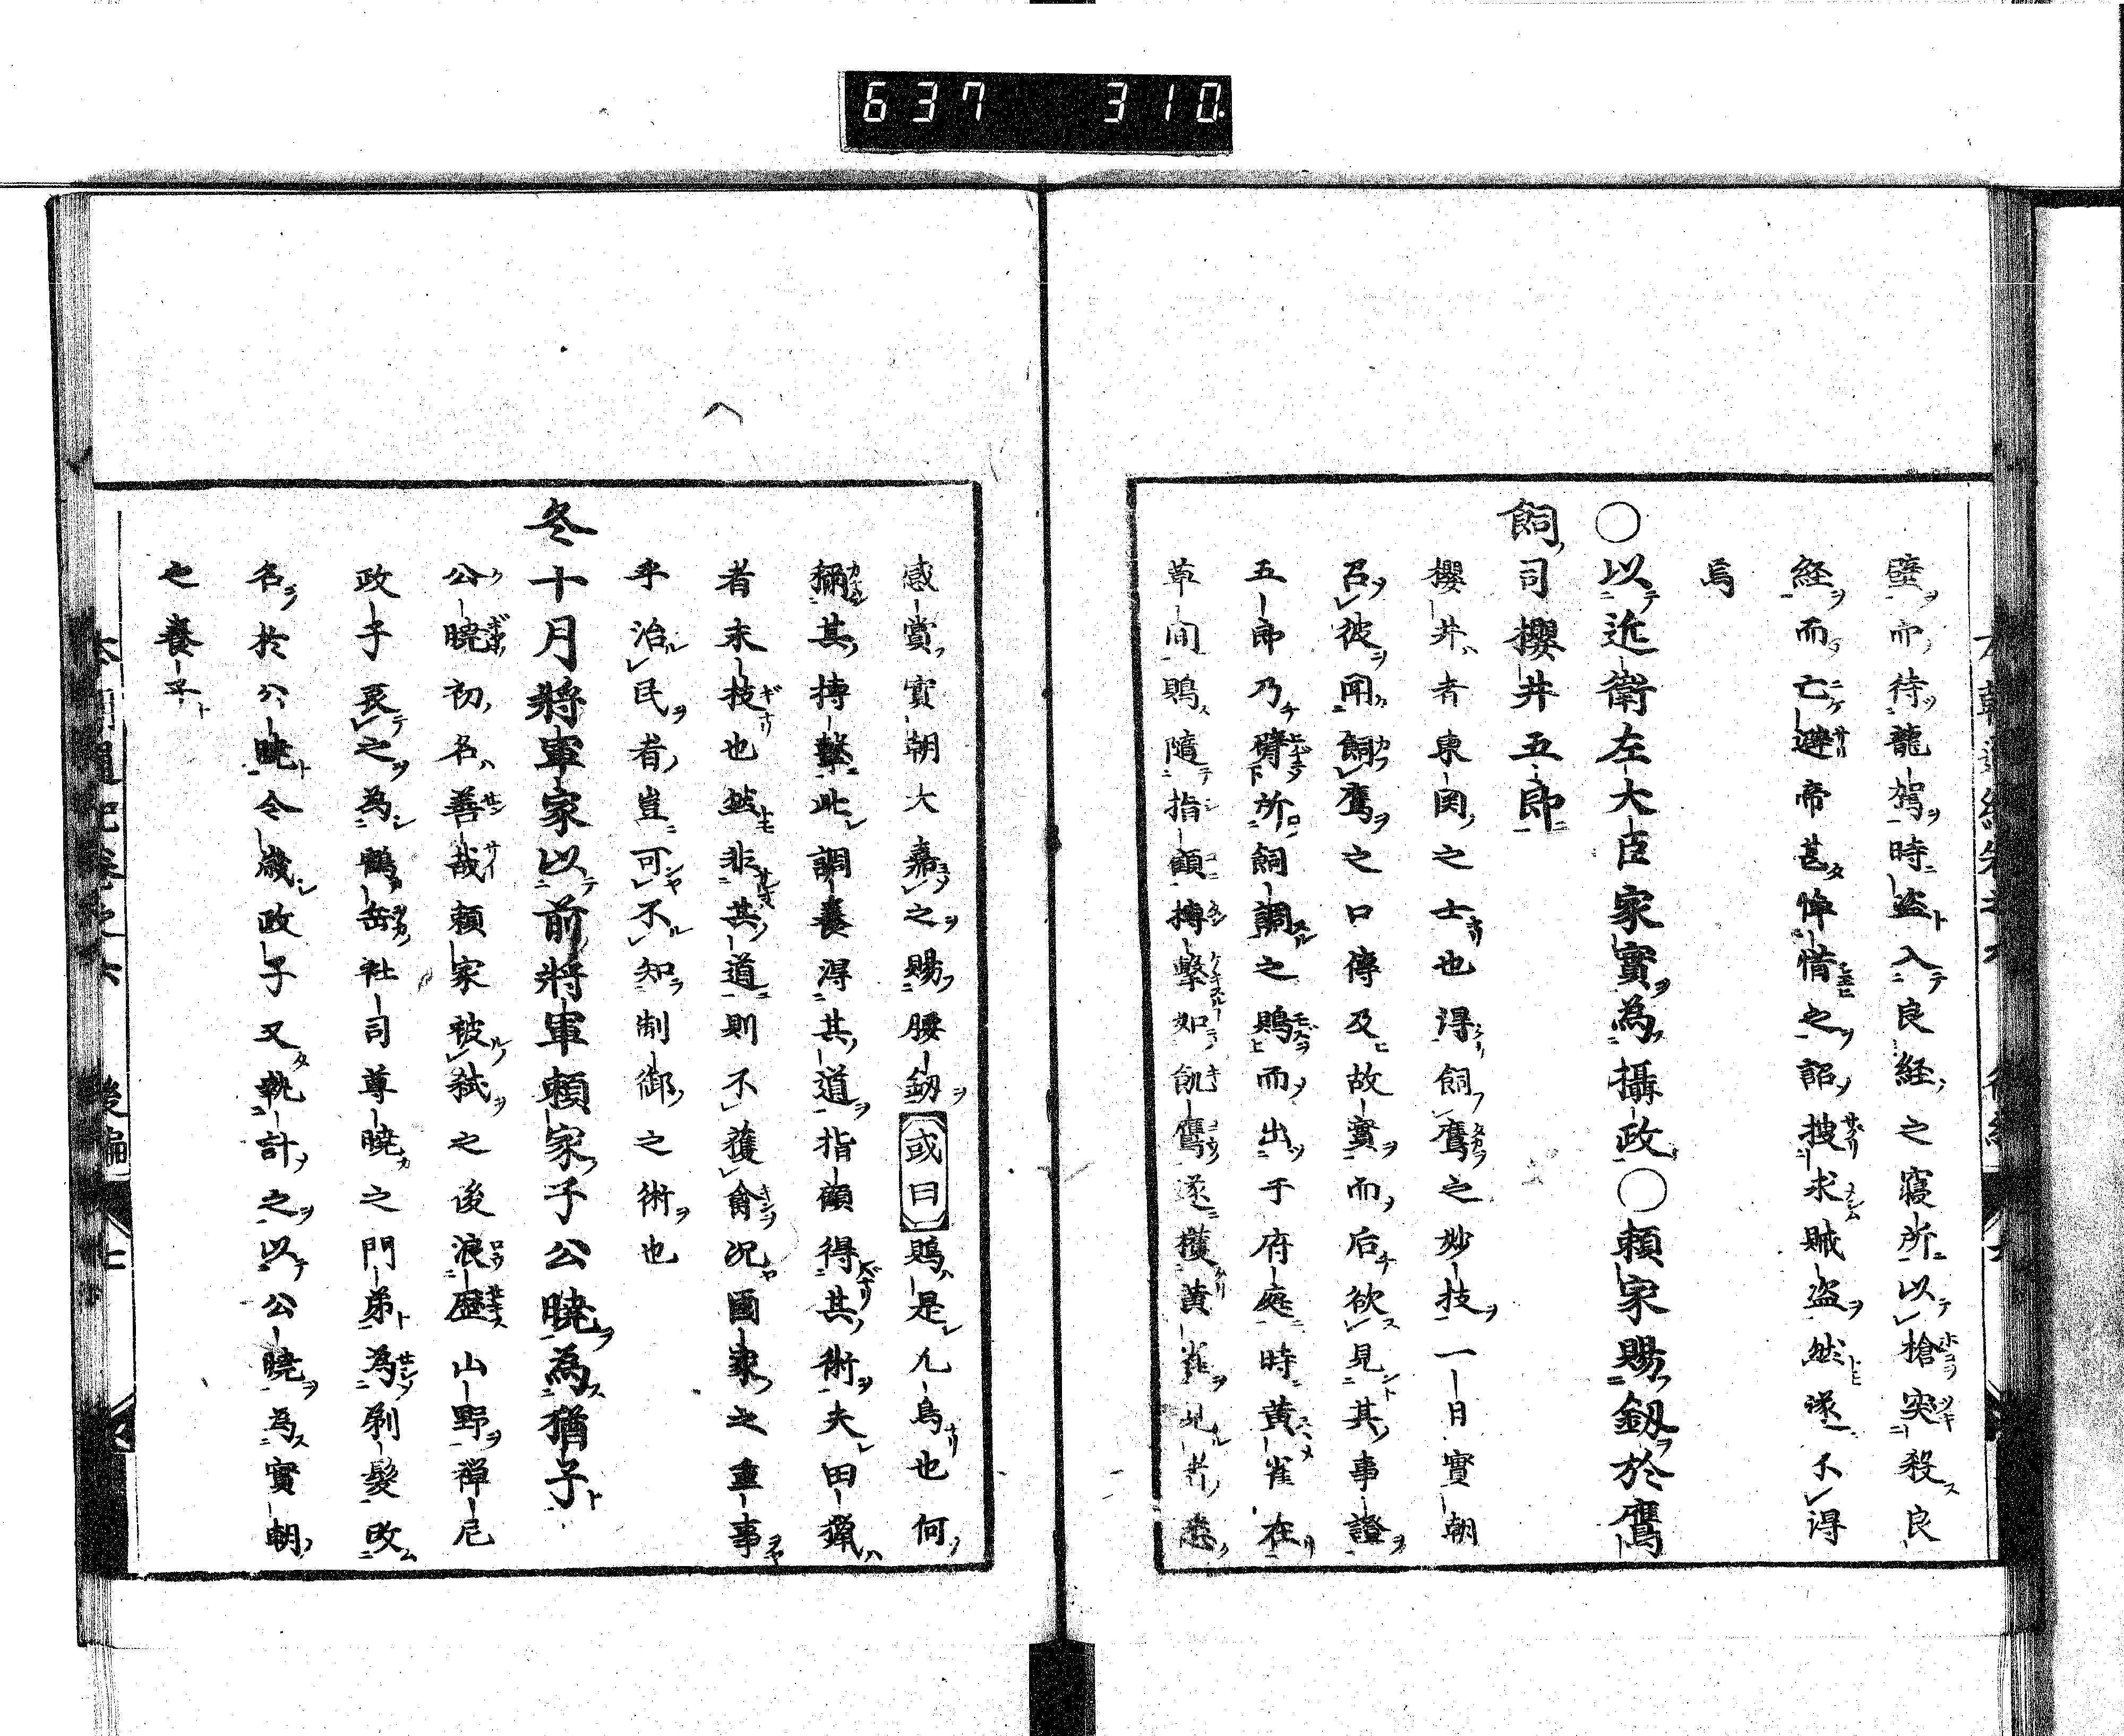 637 310
壁而待龍駕時盗入良経之寢所以槍突殺良
経而亡避帝甚悼惜之詔捜求賊盗然遂不得
焉
○以近衛左大臣家實為攝政○頼家賜釼於鷹
飼司櫻井五郎
櫻井者東関之士也得飼鷹之妙技一日實朝
召彼聞飼鷹之口傳及故實而后欲見其事證
五郎乃臂所飼調之鵙而出于府庭時黄雀在
草間鵙隨指顧搏擊如飢鷹遂獲黄雀見者悉
感賞實朝大嘉之賜腰釼或曰鵙是凡鳥也何
稱其搏擊此調養得其道指顧得其術夫田猟
者末技也然非其道則不獲禽况國家之重事
乎治民者豈可不知制御之術也
冬十月將軍家以前將軍頼家子公曉為猶子
公曉初名善哉頼家被弑之後浪歴山野禅尼
政子哀之為鶴岳社司尊曉之門弟為剃髮改
名於公曉今歲政子又執計之以公曉為實朝
之養子